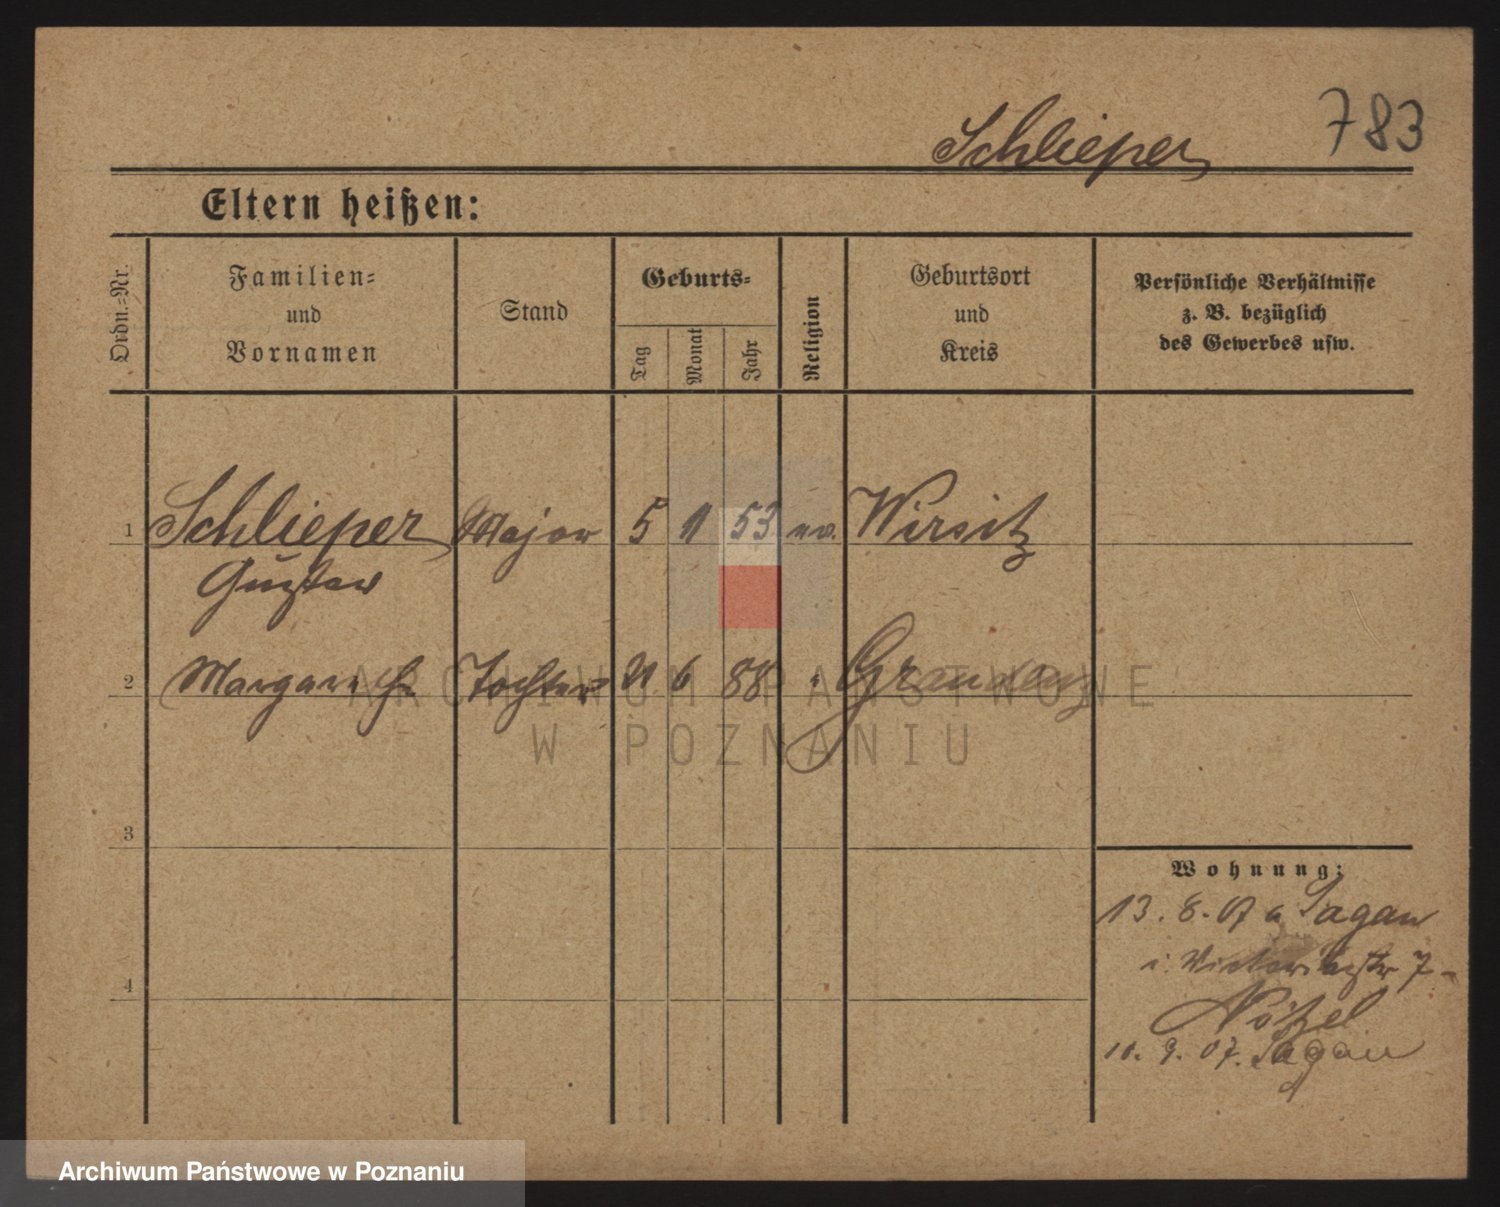 783
Schlieper
Eltern heißen:
Ordn.-Nr.
Familien-
und
Vornamen
Stand
Geburts-
Tag
Monat
Jahr
Religion
Geburtsort
und
Kreis
Persönliche Verhältnisse
z. B. bezüglich
des Gewerbes usw.
1 Schlieper Major 5 1 53 ev. Wirsitz
Gustav
2 Margarethe Tochter 21 6 88 " Graudenz
ARCHIWUM PAŃSTWOWE
W POZNANIU
3
4
Wohnung:
13. 8. 07 a Sagan
i. Victoriastr 7
Nötzel
10. 9. 07. Sagan
Archiwum Państwowe w Poznaniu